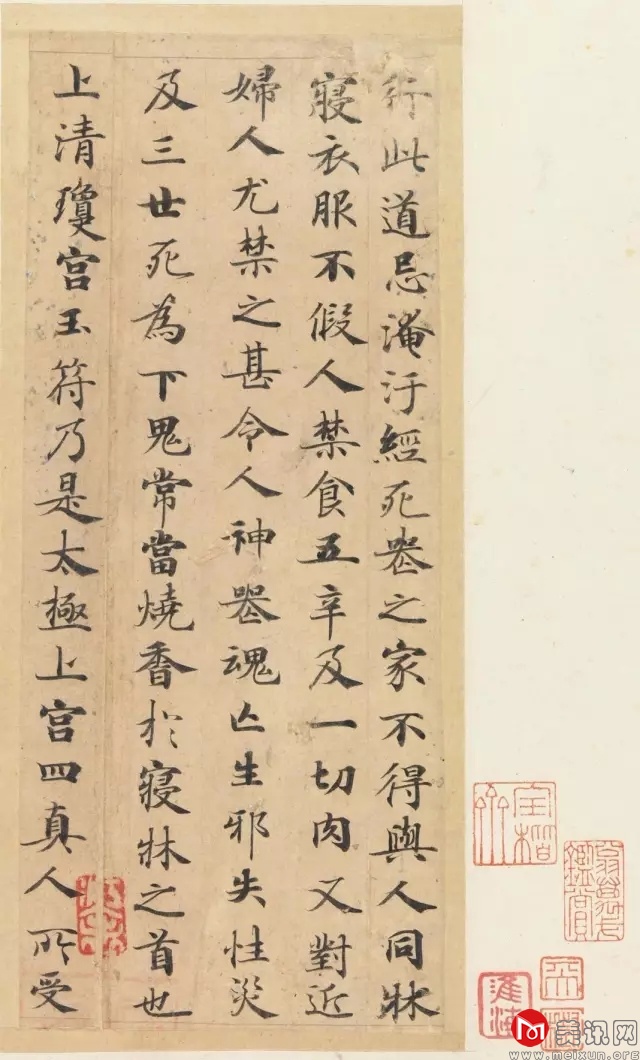 行此道忌淹汙經死喪之家不得與人同牀
寢衣服不假人禁食五辛及一切肉又對近
婦人尤禁之甚令人神喪魂亡生邪失性災
及三世死為下鬼常當燒香於寢牀之首也
上清瓊宮玉符乃是太極上宮四真人所受
美讯网
www.meixun.org